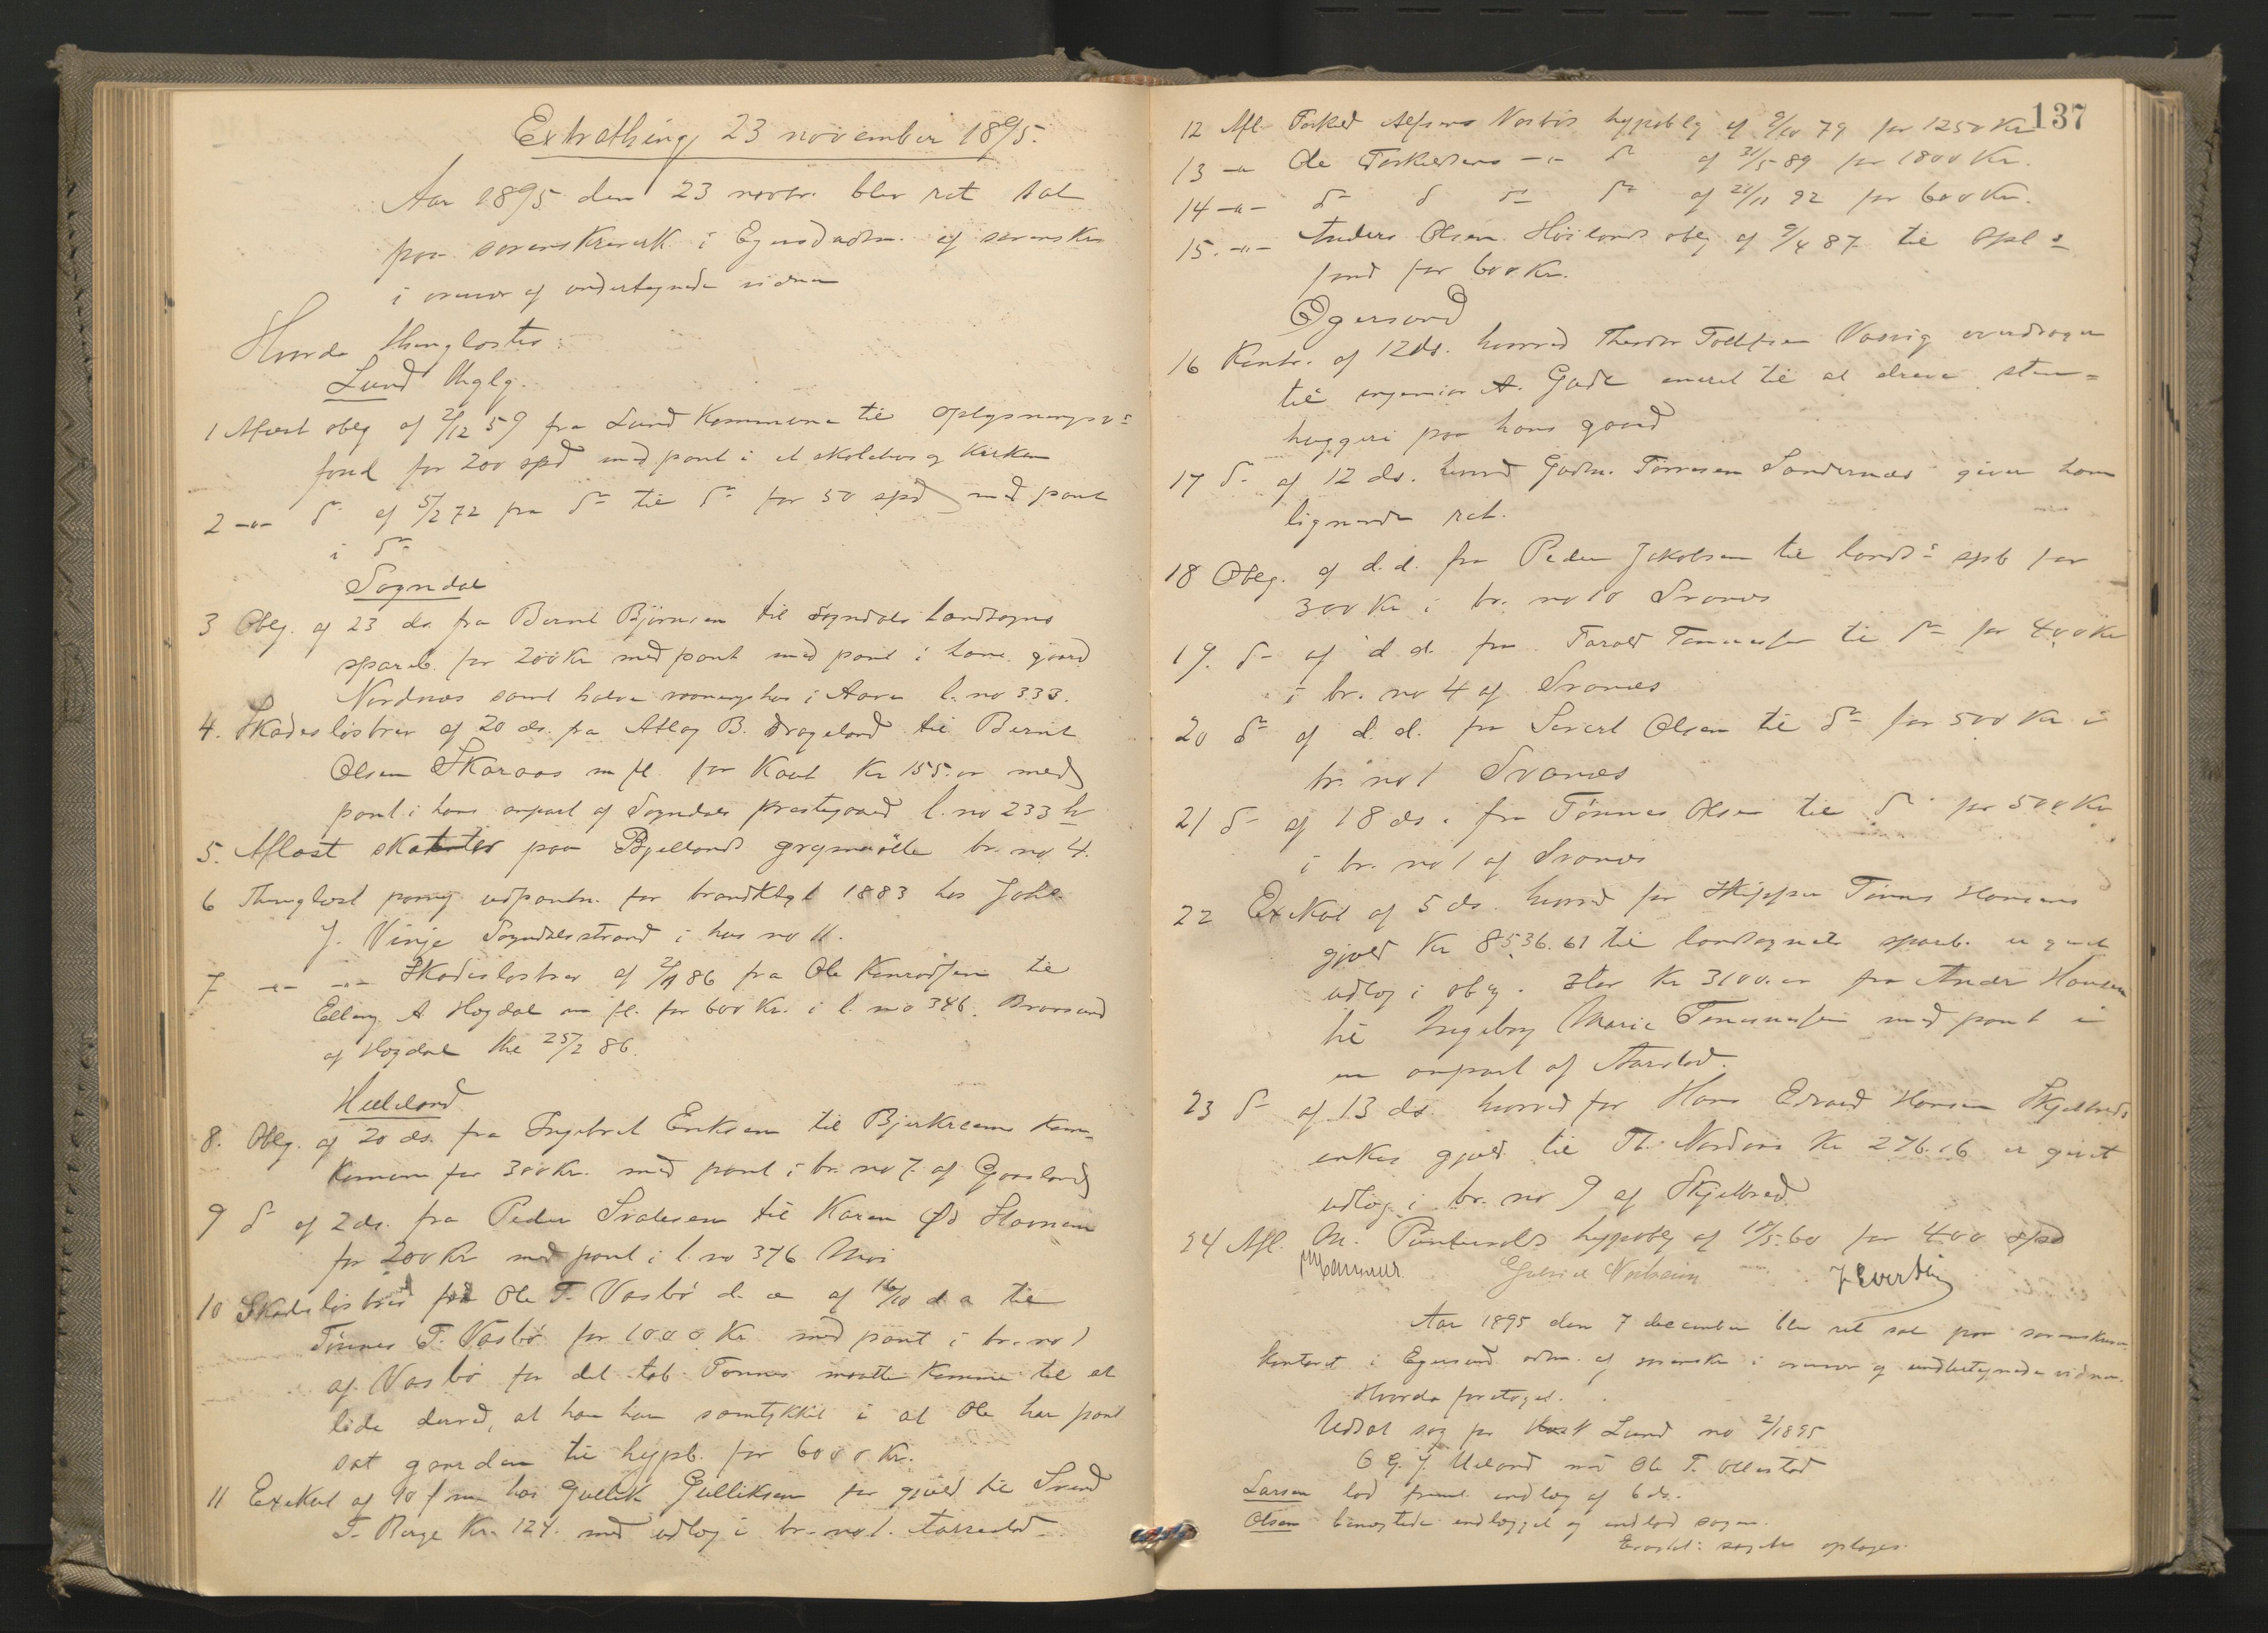 Extrathing 23 november 1895.
Aar 1895 den 23 novbr. blev ret sat
paa sorenskriverk. i Egersund adm. af sorenskr.
i overvær af undertegnede vidner
Hvorda thinglæstes:
Lund thglg.
1 Aflæst oblg af 2/12 59 fra Lund Kommune til oplysnings=
fond for 200 spd med pant i et skolehus og Kirken
2 -"- do af 5/2 72 fra do til do for 50 spd med pant
i do
Sogndal
3 Oblg. af 23 ds. fra Bernt Björnsen til Sogndals landsogns
spareb. for 200 Kr med pant med pant i hans gaard
Nordnæs samt halve vaaningshus i Aavn l. no 333.
4. Skadesløsbrev af 20 ds. fra Atlag B. Drageland til Bernt
Olsen Skaraas m fl. for Kaut Kr 155.00 med
pant i hans anpart af Sogndals præstegaard l. no 233 h
5. Aflæst skatter paa Bjellands grynmölle br. no 4.
6 Thinglæst udpantn. for brandktgt 1883 hos Johs.
J. Vinje Sogndalsstrand i hus no 11.
7 -"- -"- Skadesløsbrev af 86 fra Ole Konradsen til
Elling A Hogdal m fl. for 600 Kr. i l. no 346. Braasund
af Hogdal thl 25/2 86.
Helleland
8. Oblg. af 20 ds. fra Ingebret Eriksen til Bjerkreims Kom-
kommune for 300 Kr. med pant i br. no 7 af Gaasland
9 do af 2 ds. fra Peder Svalesen til Karen Hovnen
for 200 Kr med pant i l. no 376 Moi
10 Skadesløsbrev fra Ole T. Vasbö d. æ af 16/10 d a til
Tönnes T. Vasbö for 1000 Kr med pant i br. no 1
af Vasbö for det tab Tönnes maatte komme til at
lide derved, at han har samtykket i at Ole har pant
sat gaarden til hypb. for 6000 Kr.
11 Exekut af 90 f m hos Gullik Gulliksen for gjæld til Svend
T. Berge Kr. 124. med udlæg i br. no 1. Aarrestad
137
12 Afl. Torkel Alfsens Vasbös hypoblg af 9/10 79 for 1250 Kr
13 -"- Ole Torkelsens -"- do af 31/5 89 for 1800 Kr.
14 -"- do do do do af 21/11 92 for 600 Kr.
15. -"- Anders Olsen Höilands oblg af 9/4 87 til Opl=
fond for 600 Kr.
Egersund
16 Kontr. af 12 ds. hvorved Theodor Tollefsen Vassvig overdrager
til ingeniör A. Gade eneret til at drive sten=
huggeri paa hans gaard
17 do af 12 ds. hvorved Gudm. Tönnesen Sandernæs giver ham
lignende ret.
18 Oblg. af d.d. fra Peder Jakobsen til lands= spb for
300 Kr i br. no 10 Svanæs
19. do af d d. fra Tarald Tönnessen til do for 400 Kr
i br. no 4 af Svanæs
20 do af d. d. fra Sivert Olsen til do for 500 Kr i
br. no 1 Svanæs
21 do af 18 ds. fra Tönnes Olsen til do for 500 Kr
i br. no 1 af Svanæs
22 Exekut af 5 ds. hvorved for Skipper Tönnes Hansens
gjæld Kr 8536.61 til landsognets spareb. er givet
udlæg i oblg. stor Kr 3100.00 fra Andr Hansen
til Ingeborg Marie Tönnesen med pant i
en anpart af Aarstad.
23 do af 13 ds. hvorved for Hans Edvard Hansen Skjelbreds
enkes gjæld til Th. Nordaas Kr 276.16 er givet
udlæg i br. no 9 af Skjelbred.
24 Afl. M. Puntervolds hypoblg af 18/5 60 for 400 spd
Aar 1895 den 7 december blev ret sat paa sorenskriver
Kontoret i Egersund adm. af sorenskr. i overvær og undertegnede vidner.
Hvorda foretaget.
Udsat sag fra Lund no 2/1895
O G. J. Ueland mod Ole T. Ollestad
Larsen lod freml. indlæg af 6 ds.
Olsen benægtede indlægget og indlod sagen.
Eragtet: sagen optages.